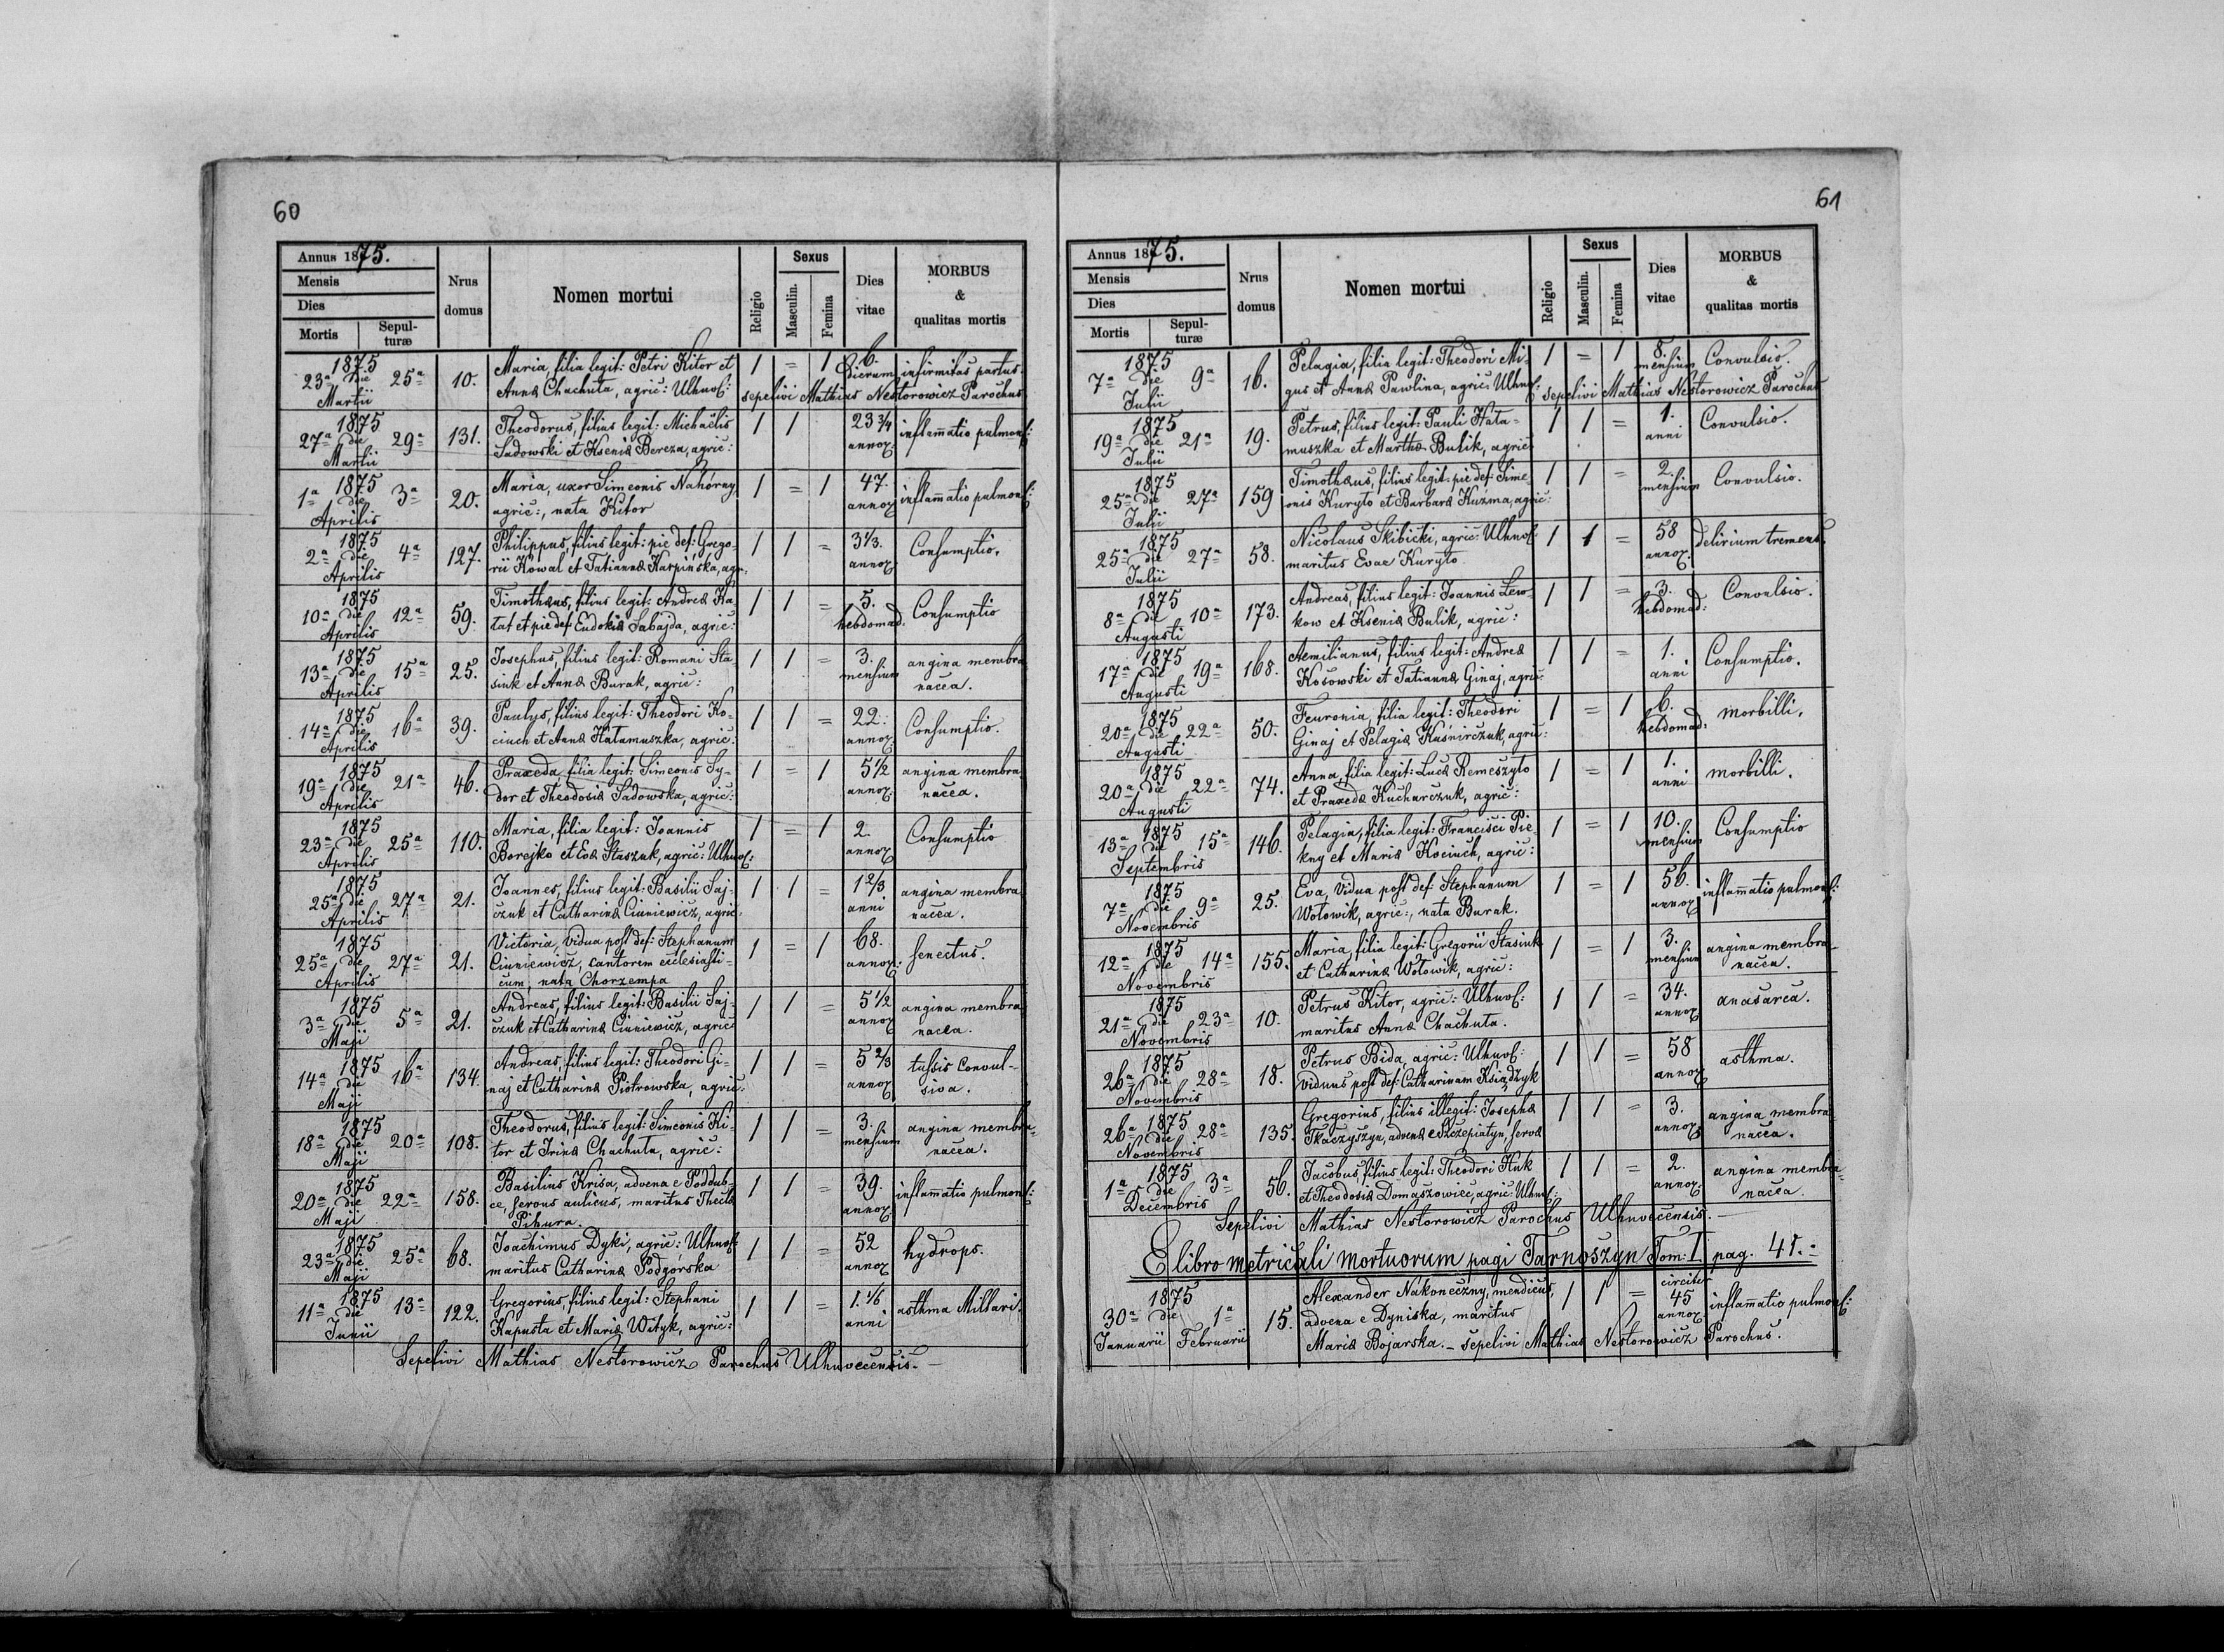 60
Annus 1875.
Mensis
Dies
Mortis
Sepul-
turæ
Nrus
domus
Nomen mortui
Religio
Sexus
Masculin.
Femina
Dies
vitae
MORBUS
&
qualitas mortis
1875 Maria, filia legit: Petri Kitor et 1 = 1 6.
23ª die 25ª 10. dierum infirmitas partus.
Martii Anna Chachuta, agric: Ulhuv: sepelivi Mathias Nestorowicz Parochus
1875 Theodorus, filius legit: Michaëlis 1 1 23 3/4
27ª die 29ª 131. inflam̄atio pulmon:
Martii Sadowski et Kseniæ Bereza, agric: annor
1875 Maria, uxor Simeonis Nahórny 1 = 1 47.
1ª die 3ª 20. inflam̄atio pulmon:
Aprilis agric:, nata Kitor annor
1875 Philippus, filius legit: pie def: Grego- 1 1 = 3 1/3.
2ª die 4ª 127. Consumptio.
Aprilis rii Kowal et Tatianna Karpińska, agr: annor
1875 Timothæus, filius legit: Andreæ Ha 1 1 = 5.
10ª die 12ª 59. Consumptio
Aprilis tat et pie def: Eudokiæ Sabajda, agric: hebdomad.
1875 Josephus, filius legit: Romani Sta 1 1 = 3. angina membra
13ª die 15ª 25. mensium
Aprilis siuk et Anna Burak, agric: nacea.
1875 Paulus, filius legit: Theodori Ko- 1 1 = 22.
14ª die 16ª 39. Consumptio.
Aprilis ciuch et Anna Hatamuszka, agric: annor
1875 Praxeda, filia legit: Simeonis Sy- 1 = 1 5 1/2 angina membra
19ª die 21ª 46.
Aprilis dor et Theodosiæ Sadowska, agric: annor nacea.
1875 Maria, filia legit: Joannis 1 = 1 2.
23ª die 25ª 110. Consumptio
Aprilis Borejko et Eva Staszuk, agric: Ulhuv: annor
1875 Joannes, filius legit: Basilii Saj- 1 1 = 1 2/3 angina membra
25ª die 27ª 21.
Aprilis czuk et Catharina Ciuniewicz, agric: anni nacea.
1875 Victoria, vidua post def: Stephanum 1 = 1 68.
25ª die 27ª 21. Ciuniewicz, cantorem ecclesiasti- annor: senectus.
Aprilis cum, nata Chorzempa
1875 Andreas, filius legit: Basilii Saj- 1 1 = 5 1/2 angina membra
3ª die 5ª 21.
Maji czuk et Catharina Ciuniewicz, agric: annor nacea.
1875 Andreas, filius legit: Theodori Gi- 1 1 = 5 2/3 tussis convul-
14ª die 16ª 134.
Maji naj et Catharina Piotrowska, agric: annor siva.
1875 Theodorus, filius legit: Simeonis Ki- 1 1 = 3. angina membra-
18ª die 20ª 108. mensium
Maji tor et Irina Chachuta, agric: nacea.
1875 Basilius Krisa, advena e Poddub- 1 1 = 39.
20ª die 22ª 158. ce, servus aulicus, maritus Theclæ inflam̄atio pulmon:
Maji Pihura. annor
1875 Joachimus Dyki, agric: Ulhuv: 1 1 = 52
23ª die 25ª 68. hydrops.
Maji maritus Catharina Podgorska annor
1875 Gregorius, filius legit: Stephani 1 1 = 1. 1/6
11ª die 13ª 122. asthma Millari.
Junii Kapusta et Maria Wityk, agric: anni
Sepelivi Mathias Nestorowicz Parochus Ulhuvecensis.
61
Annus 1875.
Mensis
Dies
Mortis
Sepul-
turæ
Nrus
domus
Nomen mortui
Religio
Sexus
Masculin.
Femina
Dies
vitae
MORBUS
&
qualitas mortis
1875 Pelagia, filia legit: Theodori Mi- 1 = 1 8.
7ª die 9ª 16. mensium Convulsio.
Julii gus et Anna Pawlina, agric: Ulhuv: sepelivi Mathias Nestorowicz Parochus
1875 Petrus, filius legit: Pauli Hata- 1 1 = 1.
19ª die 21ª 19. anni Convulsio.
Julii muszka et Martha Bulik, agric:
1875 Timothæus, filius legit: pie def: Sime- 1 1 = 2.
25ª die 27ª 159 mensium Convulsio.
Julii onis Kuryło et Barbara Kuźma, agric:
1875 Nicolaus Skibicki, agric: Ulhuv: 1 1 = 58
25ª die 27ª 58. delirium tremens.
Julii maritus Evae Kuryło annor
1875 Andreas, filius legit: Joannis Lew- 1 1 = 3.
8ª die 10ª 173. hebdomad: Convulsio.
Augusti kow et Ksenia Bulik, agric:
1875 Aemilianus, filius legit: Andreæ 1 1 = 1.
17ª die 19ª 168. anni Consumptio.
Augusti Kosowski et Tatianna Ginaj, agric:
1875 Feuronia, filia legit: Theodori 1 = 1 6.
20ª die 22ª 50. hebdomad: morbilli.
Augusti Ginaj et Pelagia Kuśnirczuk, agric:
1875 Anna, filia legit: Lucæ Remeszyło 1 = 1 1.
20ª die 22ª 74. anni morbilli.
Augusti et Praxeda Kucharczuk, agric:
1875 Pelagia, filia legit: Francisci Pie- 1 = 1 10.
13ª die 15ª 146. mensium Consumptio
Septembris kny et Maria Kociuch, agric:
1875 Eva, vidua post def: Stephanum 1 = 1 56.
7ª die 9ª 25. annor inflam̄atio pulmon:
Novembris Wołowik, agric:, nata Burak.
1875 Maria, filia legit: Gregorii Stasiuk 1 = 1 3. angina membra-
12ª die 14ª 155. mensium
Novembris et Catharina Wołowik, agric: nacea.
1875 Petrus Kitor, agric: Ulhuv: 1 1 = 34.
21ª die 23ª 10. annor anasarca.
Novembris maritus Anna Chachuta.
1875 Petrus Bida, agric: Ulhuv: 1 1 = 58
26ª die 28ª 18. annor asthma.
Novembris viduus post def: Catharinam Książyk
1875 Gregorius, filius illegit: Josepha 1 1 = 3. angina membra
26ª die 28ª 135. annor
Novembris Tkaczyszyn, advena e Szczepiatyn, serva nacea.
1875 Jacobus, filius legit: Theodori Huk 1 1 = 2. angina membra-
1ª die 3ª 56. annor
Decembris et Theodosia Domaszowiec, agric: Ulhuv: nacea.
Sepelivi Mathias Nestorowicz Parochus Ulhuvecensis.
E libro metricali mortuorum pagi Tarnoszyn Tom: I pag. 41.
1875 Alexander Nakoneczny, mendicus, 1 1 = circiter 45
30ª die 1ª 15. advena e Dyniska, maritus annor inflam̄atio pulmon:
Januarii Februarii Maria Bojarska. - sepelivi Mathias Nestorowicz Parochus.